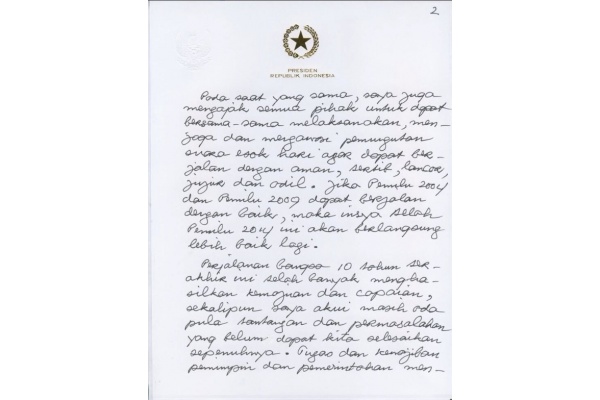 2
PRESIDEN
REPUBLIK INDONESIA
Pada saat yang sama, saya juga
mengajak semua pihak untuk dapat
bersama-sama melaksanakan, men-
jaga dan mengawasi pemungutan
suara esok hari agar dapat ber-
jalan dengan aman, tertib, lancar,
jujur dan adil. Jika Pemilu 2004
dan Pemilu 2009 dapat berjalan
dengan baik, maka insya Allah
Pemilu 2014 ini akan berlangsung
lebih baik lagi.
Perjalanan bangsa 10 tahun ter-
akhir ini telah banyak mengha-
silkan kemajuan dan capaian,
sekalipun saya akui masih ada
pula tantangan dan permasalahan
yang belum dapat kita selesaikan
sepenuhnya. Tugas dan kewajiban
pemimpin dan pemerintahan men-